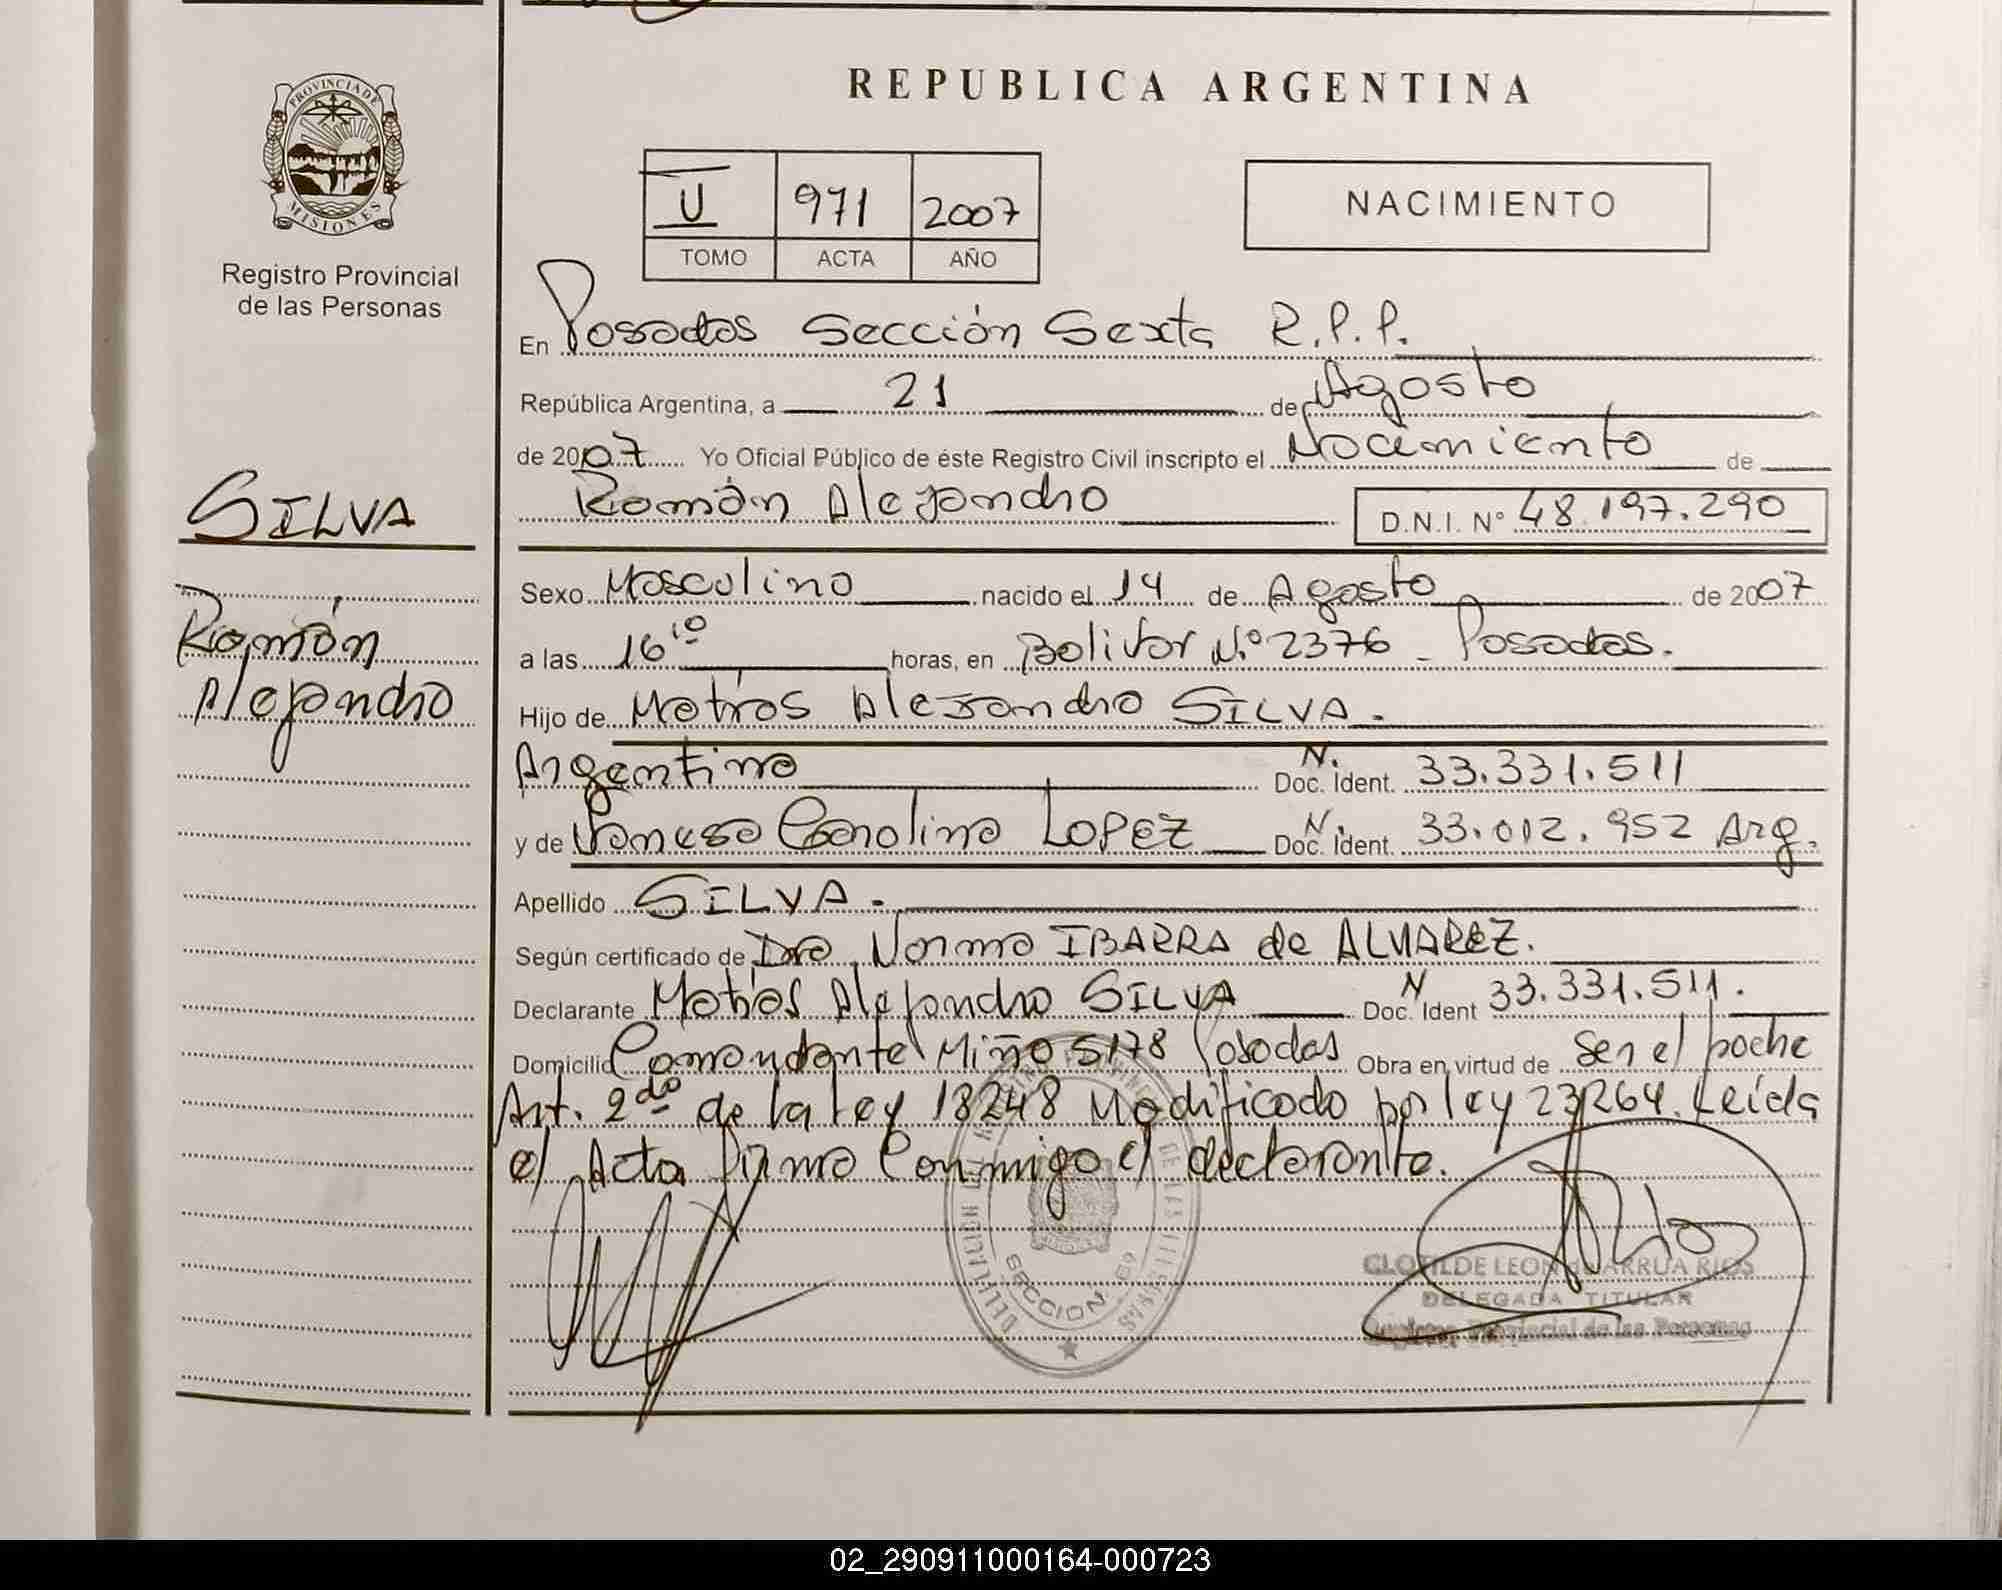 REPUBLICA ARGENTINA
PROVINCIA DE
MISIONES
Registro Provincial
de las Personas
U 971 2007
TOMO ACTA AÑO
NACIMIENTO
En Posadas Sección Sexta R.P.P.
República Argentina, a 21 de Agosto
de 2007 Yo Oficial Público de éste Registro Civil inscripto el Nacimiento de
Román Alejandro D.N.I. N° 48.197.290
SILVA
Román
Alejandro
Sexo Masculino nacido el 14 de Agosto de 2007
a las 16 10 horas, en Bolivar N.° 2376 - Posadas.
Hijo de Matías Alejandro SILVA.
Argentino N. Doc. Ident. 33.331.511
y de Vanesa Carolina LOPEZ N. Doc. Ident. 33.012.952 Arg.
Apellido SILVA.
Según certificado de Dra Norma IBARRA de ALVAREZ.
Declarante Matías Alejandro SILVA N Doc. Ident 33.331.511.
Domicilio Comandante Miño 5178 Posadas Obra en virtud de Ser el padre
Art. 2do de la ley 18248 Modificado por ley 23264. Leída
el Acta firma Conmigo el declarante.
SECCION 6ª
CLOTILDE LEON de ARRUA RIOS
DELEGADA TITULAR
Registro Provincial de las Personas
02_290911000164-000723